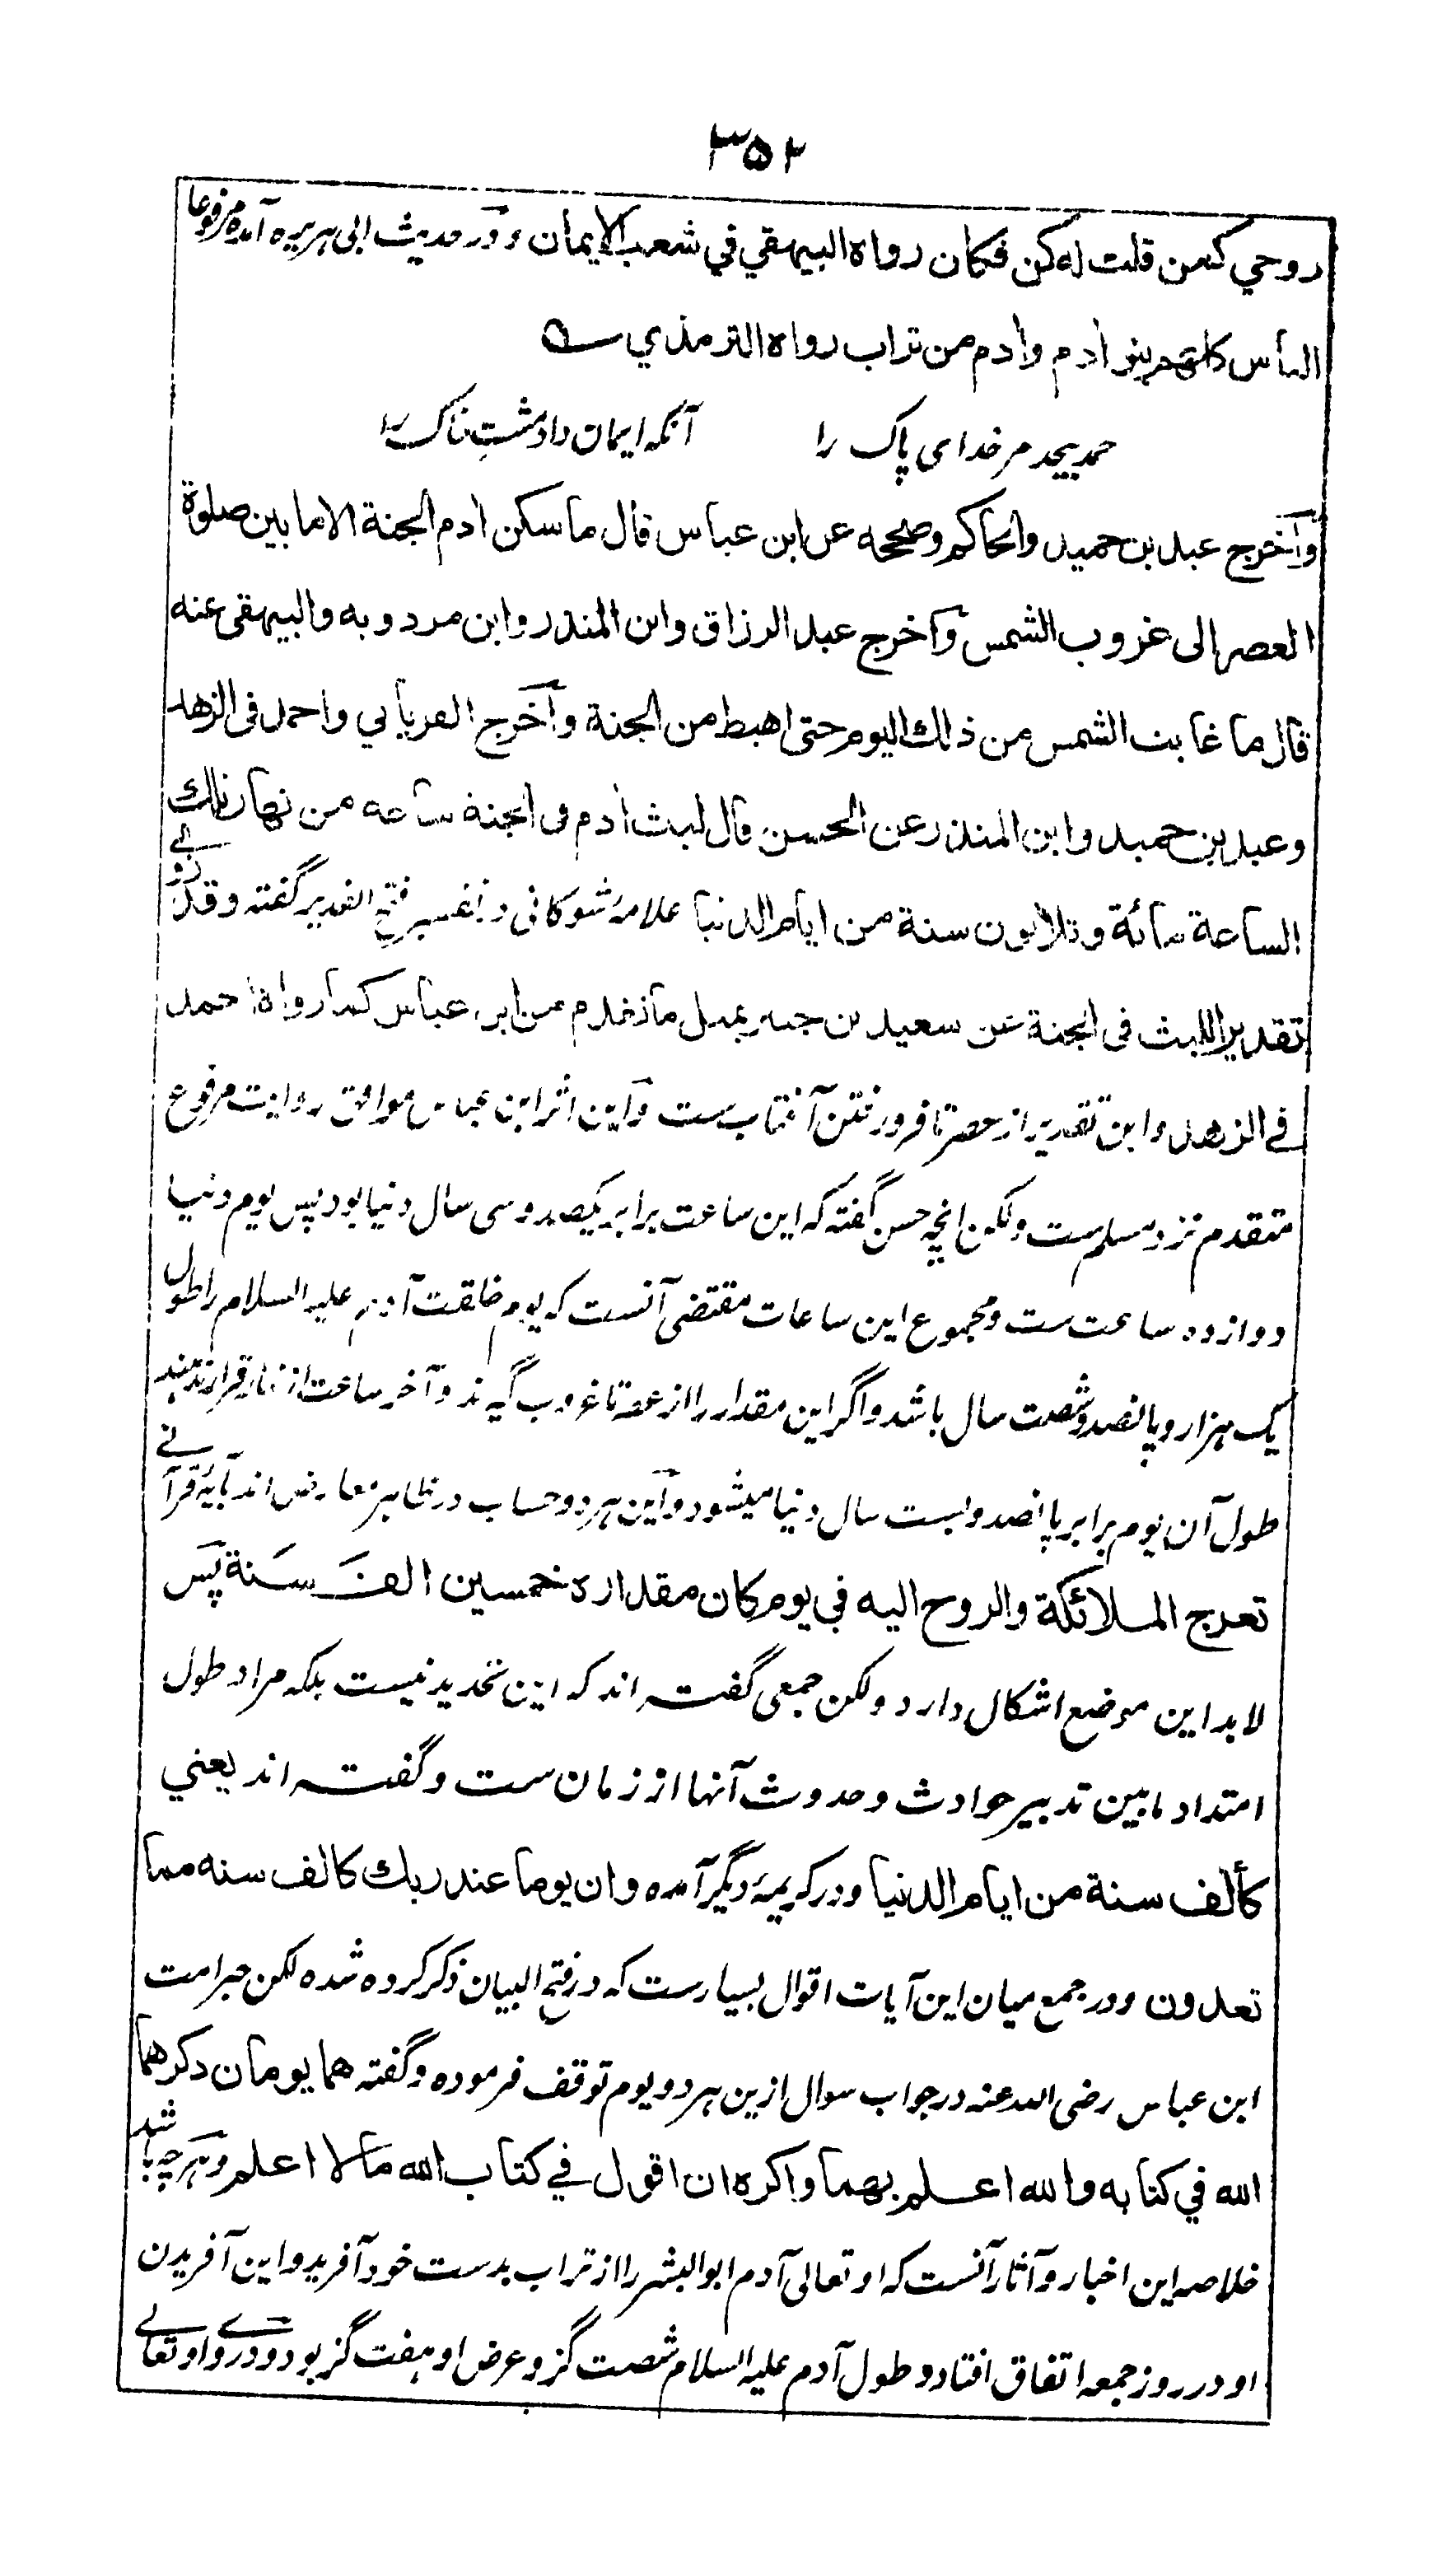 ۳۵۲
روحي كمن قلت له كن فكان رواه البيهقي في شعب الايمان ودر حديث ابى هريره آمده مرفوعا
الناس كلهم بنو آدم وآدم من تراب رواه الترمذي
حمد بیحد مر خدای پاک را آنکه ایمان داد مشت خاک را
وأخرج عبد بن حميد والحاكم وصححه عن ابن عباس قال ما سكن آدم الجنة الا ما بين صلوة
العصر الى غروب الشمس وأخرج عبد الرزاق وابن المنذر وابن مردويه والبيهقى عنه
قال ما غابت الشمس من ذلك اليوم حتى اهبط من الجنة وأخرج الفريابي واحمد فى الزهد
وعبد بن حميد وابن المنذر عن الحسن قال لبث آدم فى الجنة ساعة من نهار تلك
الساعة مائة وثلاثون سنة من ايام الدنيا علامه شوکانی در تفسیر فتح القدیر گفته وقد روي
تقدير اللبث فى الجنة عن سعيد بن جبير بمثل ما تقدم عن ابن عباس كما رواه احمد
في الزهد واین تقدیر از عصر تا فرو رفتن آفتاب ست وآین اثر ابن عباس موافق روایت مرفوع
متقدم نزد مسلم ست ولکن انچه حسن گفته که این ساعت برابر یکصد وسی سال دنیا بود پس یوم دنیا
دوازده ساعت ست ومجموع این ساعات مقتضی آنست که یوم خلقت آدم علیه السلام را طول
یک هزار وپانصد وشصت سال باشد واگر این مقدار را از عصر تا غروب گیرند وآخر ساعت از نهار قرار دهند
طول آن یوم برابر پانصد وبست سال دنیا میشود وآین هر دو حساب در ظاهر معارض اند بآیۀ قرآنے
تعرج الملائكة والروح اليه في يوم كان مقداره خمسين الف سنة پس
لابد این موضع اشکال دارد ولکن جمعی گفته اند که این تحدید نیست بلکه مراد طول
امتداد مابین تدبیر حوادث وحدوث آنها از زمان ست وگفته اند یعني
كألف سنة من ايام الدنيا ودر کریمۀ دیگر آمده وان يوما عند ربك كالف سنه مما
تعدون ودر جمع میان این آیات اقوال بسیارست که در فتح البیان ذکر کرده شده لکن حبر امت
ابن عباس رضی الله عنه در جواب سوال ازین هر دو یوم توقف فرموده وگفته هما يومان ذكرهما
الله في كتابه والله اعلم بهما واكره ان اقول في كتاب الله ما لا اعلم وهرچه باشد
خلاصه این اخبار وآثار آنست که او تعالی آدم ابو البشر را از تراب بدست خود آفرید واین آفریدن
او در روز جمعه اتفاق افتاد وطول آدم علیه السلام شصت گز وعرض او هفت گز بود ودر وے او تعالے